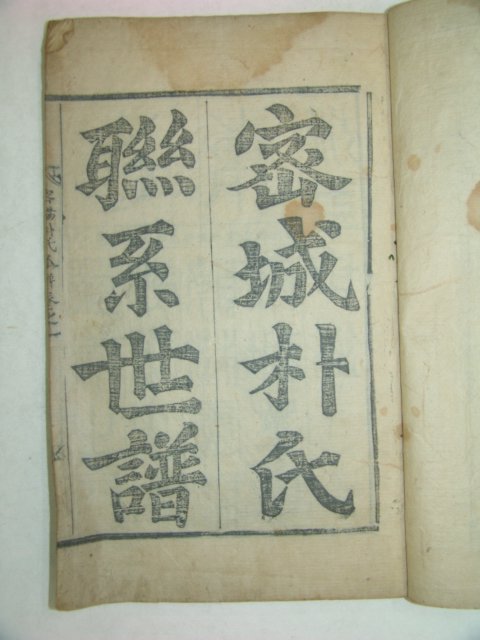 密城朴氏
聯系世譜